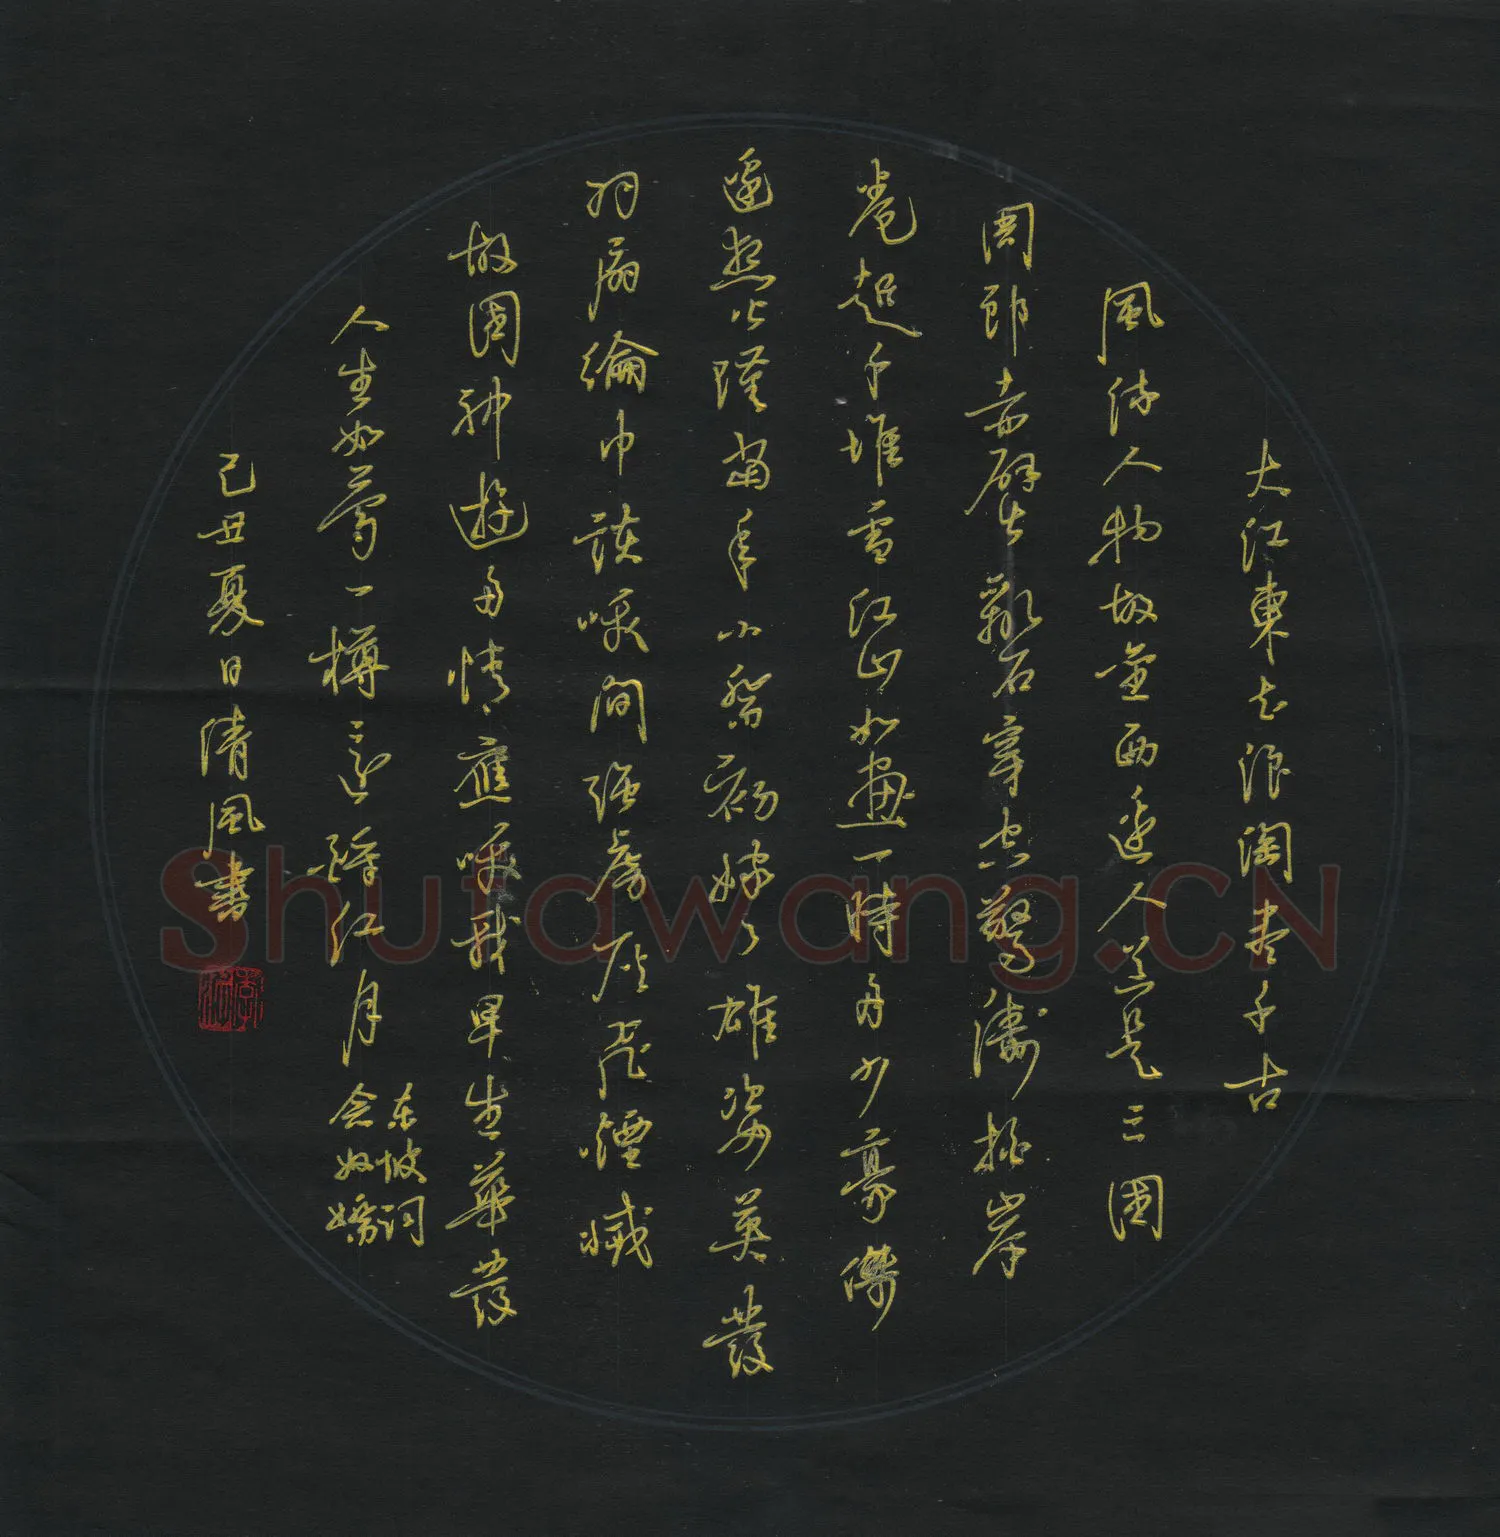 大江東去浪淘盡千古
風流人物故壘西邊人道是三國
周郎赤壁亂石穿空驚濤拍岸
卷起千堆雪江山如畫一時多少豪傑
遙想公瑾當年小喬初嫁了雄姿英發
羽扇綸巾談咲間强虜灰飛煙滅
故國神遊多情應咲我早生華發
人生如夢一樽還酹江月
东坡词
念奴嬌
己丑夏日清風書
Shufawang.CN